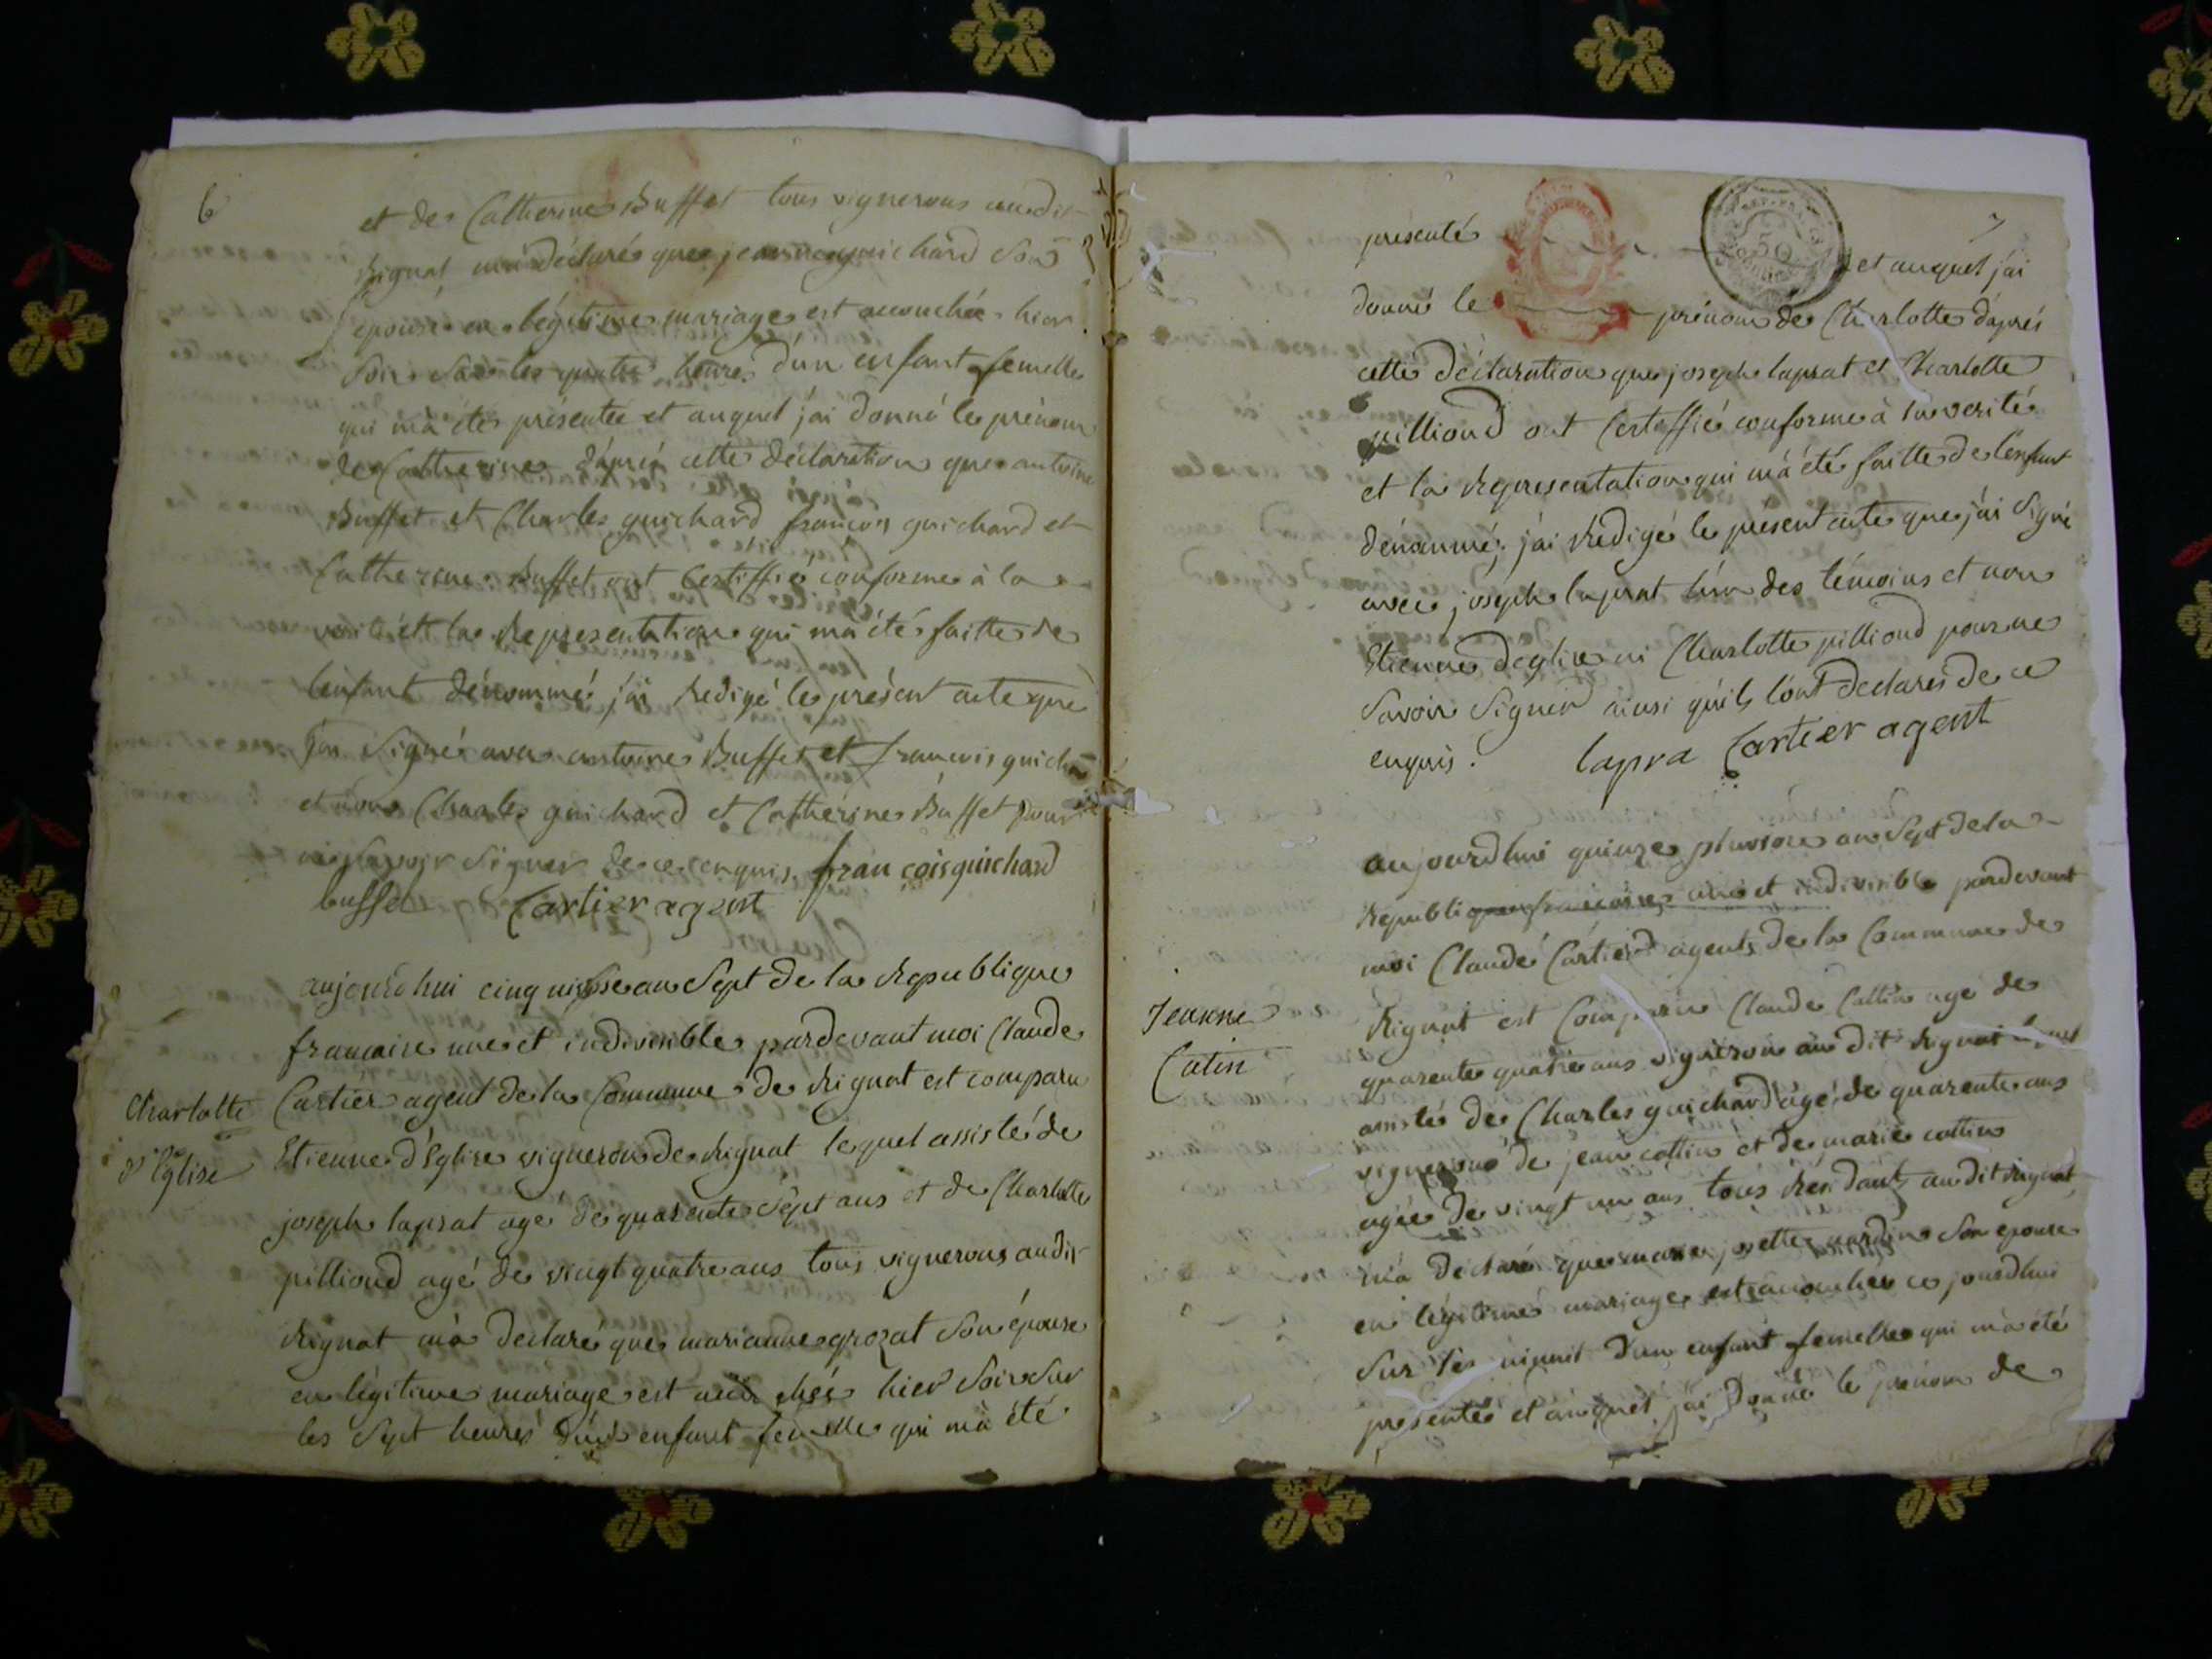 6
et de Catherine Buffet tous vignerons audit
Rignat, m'a déclaré que jeanne guichard Son
épouse en légitime mariage est acouchée hier
Soir Sur les quatre heures d'un enfant femelle
qui m'a été présentée et auquel j'ai donné le prénom
de Catherine d'aprés cette déclaration que antoine
Buffet et Charles guichard francois guichard et
Catherine Buffet ont Certiffié conforme à la
verité et la Representation qui m'a été faitte de
l'enfant dénommé j'ai Redigé le présent acte que
j'ai Signé avec antoine Buffet et francois guichar
et non Charles guichard et Catherine Buffet pour
ne Savoir Signer de ce enquis. francois guichard
buffet Cartier agent
aujourdhui cinq nivose an Sept de la Republique
francaise une et indivisible pardevant moi Claude
Cartier agent de la Commune de Rignat est comparu
Charlotte
d'Eglise
Etienne d'Eglise vigneron de Rignat lequel assisté de
joseph laprat agé de quarente Sept ans et de Charlotte
pilliond agé de vingt quatre ans tous vignerons audit
Rignat m'a declaré que marianne grozat Son épouse
en légitime mariage est acouchée hier Soir Sur
les Sept heures d'un enfant femelle qui m'a été
7
présenté et auquel j'ai
donné le prénom de Charlotte d'aprés
cette déclaration que joseph laprat et Charlotte
pilliond ont Certiffié conforme à la verité
et la Representation qui m'a été faitte de l'enfant
dénommé, j'ai Redigé le présent acte que j'ai Signé
avec joseph laprat l'un des témoins et non
Etienne d'eglise ni Charlotte pilliond pour ne
Savoir Signer ainsi qu'ils l'ont declarés de ce
enquis. lapra Cartier agent
aujourdhui quinze pluviose an Sept de la
Republique francaise une et indivisible pardevant
moi Claude Cartier agents de la Commune de
Jeanne
Catin
Rignat est Comparu Claude Cattin agé de
quarente quatre ans vigneron au dit Rignat lequel
assisté de Charles guichard agé de quarente ans
vignerons de jean cattin et de marie cattin
agée de vingt un ans tous Résidants audit Rignat
m'a déclaré que marie josette nardin Son épouse
en légitime mariage est acouchée ce jourdhui
Sur les minuit d'un enfant femelle qui m'a été
présentée et auquel j'ai Donné le prénom de